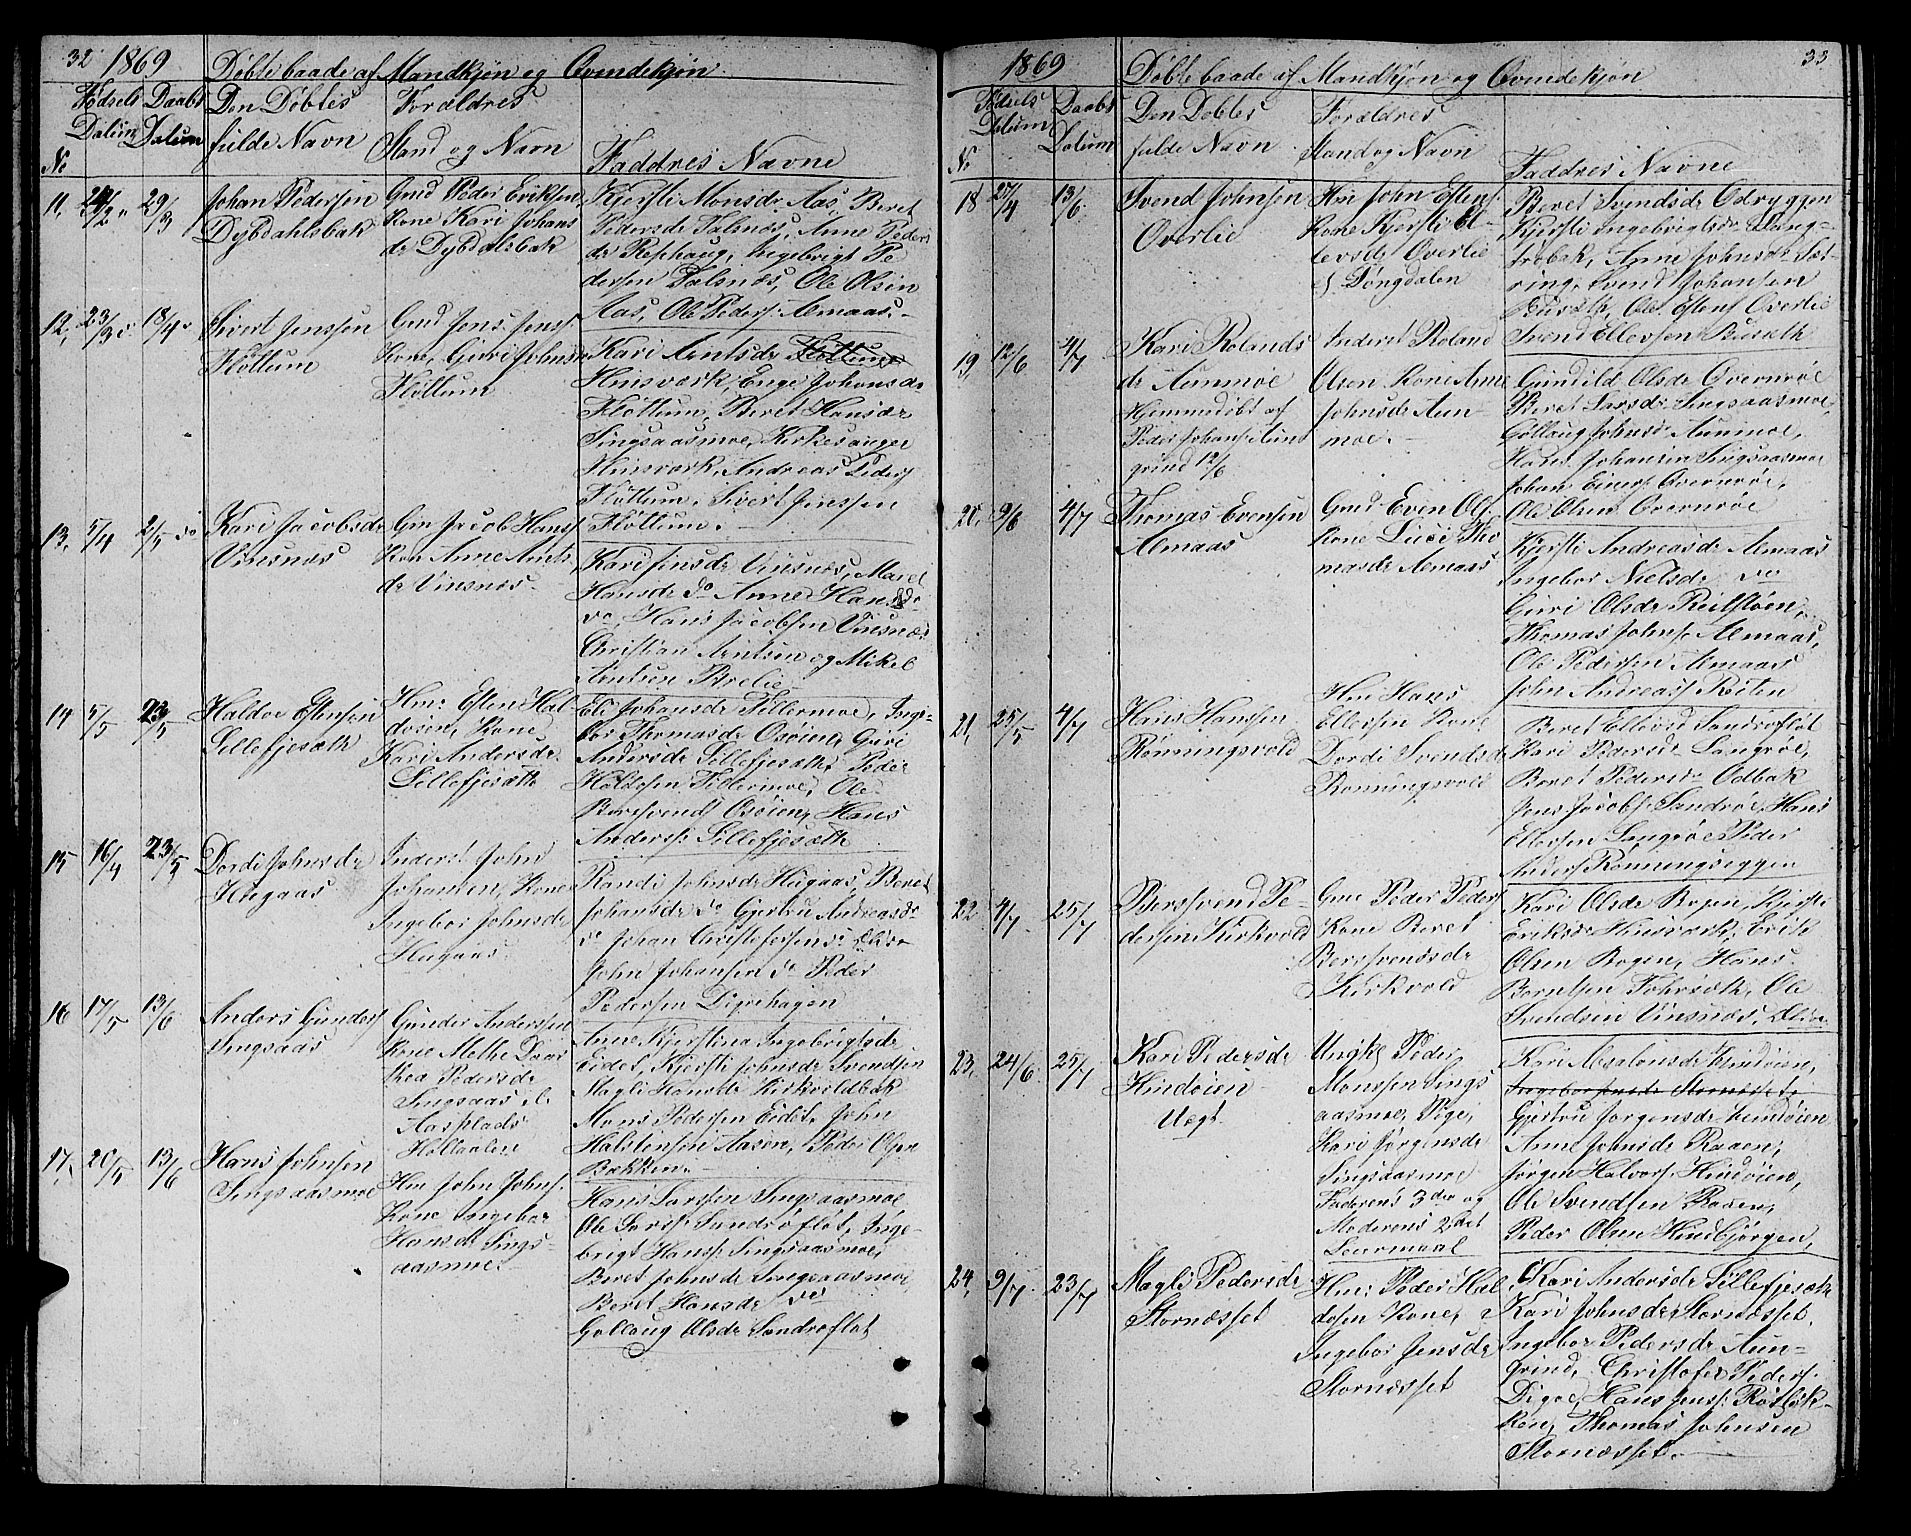 32 1869 Døbte baade af Mandkjøn og Qvindekjøn.
Fødsels Daabs Den Døbtes Forældres
Datum Datum fulde Navn Stand og Navn Faddres Navne
No
11, 24/2 29/3 Johan Pedersen Dybdahlsbak
Gmd Peder Eriksen,
Kone Kari Johans
dr Dybdalsbak
Kjersti Monsdr Aas, Beret
Pedersdr Talsnæs, Anne Peders
dr Rephaug, Ingebrigt Pe
dersen Talsnæs, Ole Olsen
Aas, Ole Peders. Almaas.
12, 23/3 18/4 Sivert Jenssen
Fløttum
Gmd Jens Jenss.
Kone, Guri Johnsdr
Fløttum
Kari Arntsdr Fløttum
Hinsværk, Inge Johansdr
Fløttum, Beret Hansdr
Singsaasmoe, Kirkesanger
Hinsværk, Andreas Peders
Fløttum, Sivert Jenssen
Fløttum.
13, 5/4 2/5 Kari Jacobsdr
Vinsnæs
Gm Jacob Hanss
Kon Anne Arnts
dr Vinsnæs.
Kari Jensdr Vinsnæs, Maret
Hansdr do Anne Hansdr
do, Hans Jacobsen Vinsnæs
Christian Arntsen og Mikel
Arntsen Brelie
14 5/5 23/5 Haldoe Estensen
Sillefjesæth
Hm: Esten Hal-
dosen, Kone
Kari Andersdr
Sillefjesæth
Eli Johansdr Fillermoe, Inge-
bor Thomasdr Osøien, Guri
Andersdr Sillefjesæth, Peder
Haldosen Fillermoe, Ole
Bersvends Osøien, Hans
Anders. Sillefjesæth
15 16/4 23/5 Dordi Johnsdr
Hugaas
Inderst John
Johansen, Kone
Ingebor Johnsdr
Hugaas.
Randi Johnsdr Hugaas, Beret
Johansdr do Gjertru Andreasdr
do Johan Christofersen do
John Johansen do Peder
Pedersen Digrehagen
16 17/5 13/6 Anders Gunders
Singsaas
Gunder Anderssen
Kone Methe Doro
thea Pedersdr
Singsaas
Aasplads
Holtaalen
Anne Kjerstina Ingebrigtsdr
Eidet, Kjersti Johnsdr Svendsen
Magli Hansdr Kirkvoldbak
Mons Pedersen Eidet, John
Halstensen Aasen, Peder Olsen
Bakken.
17, 20/5 13/6 Hans Johnsen
Singsaasmoe
Hm John Johns.
Kone Ingebor
Hansdr Sings-
aasmoe.
Hans Larssen Singsaasmoe
Ole Larss. Sandrøflot, Inge-
brigt Hanss. Singsaasmoe,
Beret Johnsdr Singsaasmoe,
Beret Hansdr do
Gollaug Olsdr Sandrøflot
1869 Døbte baade af Mandkjøn og Qvindekjøn 33
Fødsels Daabs Den Døbtes Forældres
Datum Datum fulde Navn Stand og Navn Faddres Navne
No
18 27/4 13/6 Svend Johnsen
Overlie
Hm John Estens.
Kone Kjersti El-
levsdr Overlie
Tøngdalen
Beret Svendsdr Odryggen
Kjersti Ingebrigtsdr Lang-
Anne Johnsdr Sæt-
ring, Svend Johansen
Busæth, Ole Estens. Overlie
Svend Ellevsen Busæth
19, 12/6 4/7 Kari Rolands
dr Aunmoe
Hjemmedøbt af
Peder Johans. Aune
grind 12/6
Inderst Roland
Olsen Kone Anne
Johnsdr Aun-
moe.
Gunild Olsdr Overnrøe
Beret Larsdr Singsaasmoe,
Gollaug Johnsdr Aunmoe,
Hans Johansen Singsaasmoe
Johan Eners. Overnrøe,
Ole Olsen Overnrøe
20, 9/6 4/7 Thomas Evensen
Almaas
Gmd Even Ols.
Kone Luci Tho
masdr Almaas
Kjersti Andreasdr Almaas
Ingebor Nielsdr do
Guri Olsdr Reitstøen,
Thomas Johns. Almaas,
Ole Pedersen Almaas
John Andreass. Røten
21, 25/5 4/7 Hans Hanssen
Rønningsvold
Hm Hans
Ellevsen Kone
Dordi Svendsdr
Rønningsvold
Beret Ellevsd Sandrøflot
Kari Pedersdr Langrøe,
Beret Pedersdr Odbak
Jens Jacobs. Sandrøe, Hans
Ellevsen Langrøe Peder
Anders. Rønningseggen
22 4/7 25/7 Berssvend Pe-
dersen Kirkvold
Gm Peder Peders
Kone Beret
Berssvendsdr
Kirkvold
Kari Olsdr Bogen, Kjersti
Eriksdr Hinsværk, Erik
Olsen Bogen, Hans
Berntsen Forsæth, Ole
Svendsen Vinsnæs,
23, 24/6 25/7 Kari Pedersdr
Kindøien
Uægt.
Ungk. Peder
Monssen Sings
aasmoe, Pige,
Kari Jørgensdr
Singsaasmoe
Faderens 3die og
Moderens 2det
Leiermaal
Kari Absalonsdr Kindøien,
Ingebor Jensdr Stornæsset,
Gjertru Jørgensdr Kindøien
Anne Johnsdr Raaen,
Jørgen Halvors. Kindøien,
Ole Svendsen Raaen,
Peder Olsen Hindbjørgen,
24, 9/7 23/7 Magli Pedersdr
Stornæsset
Hm: Peder Hal
dosen Kone,
Ingebor Jensdr
Stornæsset
Kari Andersdr Sillefjesæth
Kari Johnsdr Stornæsset,
Ingebor Pedersdr Aun-
grind, Christofer Peders.
Digoe, Hans Jenss. Røstbak-
ken, Thomas Johnsen
Stornæsset.